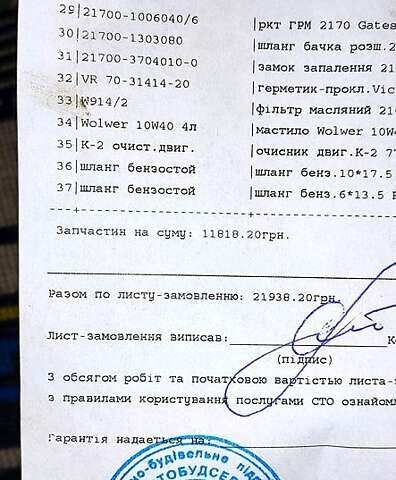 29|21700-1006040/6 |ркт ГРМ 2170 Gates
30|21700-1303080 |шланг бачка розш.2
31|21700-3704010-0 |замок запалення 21
32|VR 70-31414-20 |герметик-прокл.Vic
33|W914/2 |фільтр масляний 21
34|Wolwer 10W40 4л |мастило Wolwer 10W4
35|К-2 очист.двиг. |очисник двиг.К-2 7
36|шланг бензостой |шланг бенз.10*17.5
37|шланг бензостой |шланг бенз.6*13.5
Запчастин на суму: 11818.20грн.
Разом по листу-замовленню: 21938.20грн.
Лист-замовлення виписав:
(підпис)
З обсягом робіт та початковою вартістю листа-з
з правилами користування послугами СТО ознайомл
Гарантія надається на:
но-будівельне підп
ТОБУДСЕР